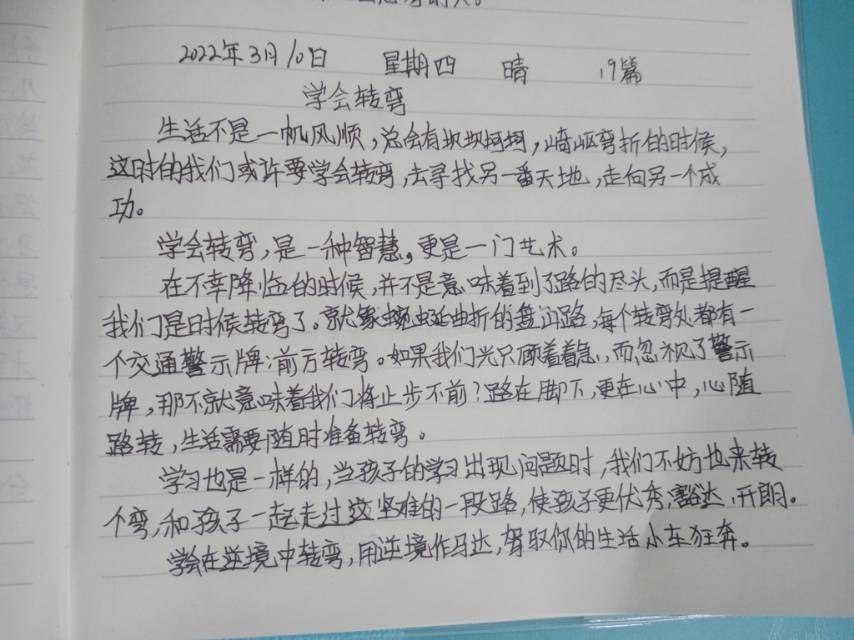 2022年3月10日 星期四 晴 19篇
学会转弯
生活不是一帆风顺，总会有坎坎坷坷，崎岖弯折的时候，
这时的我们或许要学会转弯，去寻找另一番天地，走向另一个成
功。
学会转弯，是一种智慧，更是一门艺术。
在不幸降临的时候，并不是意味着到了路的尽头，而是提醒
我们是时候转弯了。就象蜿蜒曲折的盘山路，每个转弯处都有一
个交通警示牌：前方转弯。如果我们光只顾着着急，而忽视了警示
牌，那不就意味着我们将止步不前？路在脚下，更在心中，心随
路转，生活需要随时准备转弯。
学习也是一样的，当孩子的学习出现问题时，我们不妨也来转
个弯，和孩子一起走过这坚难的一段路，使孩子更优秀，豁达，开朗。
学会在逆境中转弯，用逆境作马达，驾驭你的生活小车狂奔。